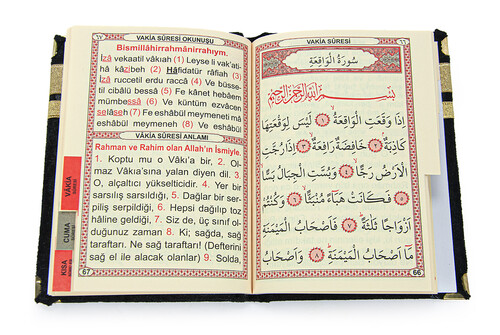 ٦٧ VAKİA SÛRESİ OKUNUŞU
Bismillâhirrahmânirrahıym.
İzâ vekaatil vâkıah (1) Leyse li vak'ati
hâ kâzibeh (2) Hâfidatür râfiah (3)
İzâ ruccetil erdu raccâ (4) Ve büsse-
til cibâlü bessâ (5) Fe kânet hebâem
mümbessâ (6) Ve küntüm ezvâcen
selâseh (7) Fe eshâbül meymeneti mâ
eshâbül meymeneh (8) Ve eshâbül
VAKİA SÛRESİ ANLAMI
Rahman ve Rahim olan Allah'ın İsmiyle.
1. Koptu mu o Vâkı'a bir, 2. Ol-
maz Vâkıa'sına yalan diyen dil. 3.
O, alçaltıcı yükselticidir. 4. Yer bir
sarsılış sarsıldığı. 5. Dağlar bir ser-
piliş serpildiği, 6. Hepsi dağılıp toz
hâline geldiği, 7. Siz de, üç sınıf ol-
duğunuz zaman 8. Ki; sağda, sağ
taraftarı. Ne sağ taraftarı! (Defterini
sağ el ile alacak olanlar) 9. Solda,
67
VAKİA SÛRESİ
CUMA
KISA
VAKİA SÛRESİ ٦٦
سُورَةُ الْوَاقِعَةِ
بِسْمِ اللّٰهِ الرَّحْمٰنِ الرَّحِيمِ
اِذَا وَقَعَتِ الْوَاقِعَةُ ﴿١﴾ لَيْسَ لِوَقْعَتِهَا
كَاذِبَةٌ ﴿٢﴾ خَافِضَةٌ رَافِعَةٌ ﴿٣﴾ اِذَا رُجَّتِ
الْاَرْضُ رَجًّا ﴿٤﴾ وَبُسَّتِ الْجِبَالُ بَسًّا
﴿٥﴾ فَكَانَتْ هَبَٓاءً مُنْبَثًّا ﴿٦﴾ وَكُنْتُمْ
اَزْوَاجًا ثَلٰثَةً ﴿٧﴾ فَاَصْحَابُ الْمَيْمَنَةِ
مَٓا اَصْحَابُ الْمَيْمَنَةِ ﴿٨﴾ وَاَصْحَابُ
66